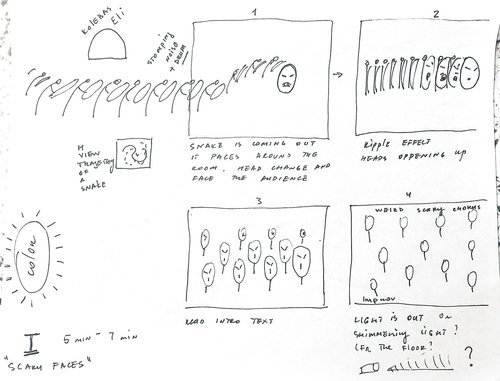 KOLEBAS
Eli
STOMPING
NOISE
+ DRUM
1
2
SNAKE IS COMING OUT
IT PACES AROUND THE
ROOM. HEAD CHANGE AND
FACE THE AUDIENCE
RIPPLE EFFECT
HEADS OPPENING UP
VIEW
TRAJECTORY
OF
A
SNAKE
3
4
WEIRD SCARY CHORUS
Improv
READ INTRO TEXT
colour
LIGHT IS OUT OR
SHIMMERING LIGHT?
THE FLOOR?)
?
I 5 min - 7 min
"SCARY FACES"